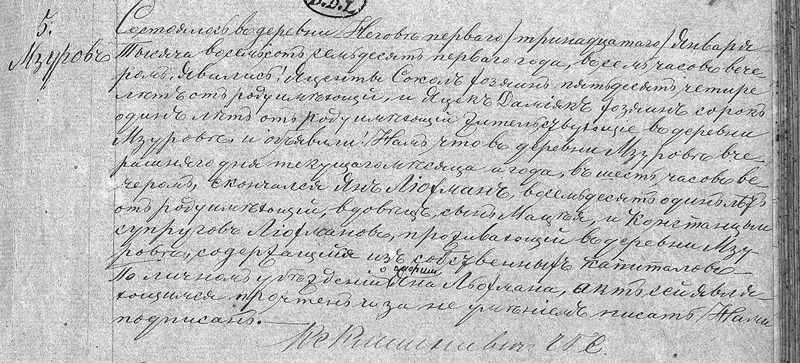 5.
Мзуровъ
Состоялось въ деревни Неговѣ перваго /тринадцатаго/ Января
тысяча восемьсотъ семьдесятъ перваго года, въ семь часовъ вече-
ромъ. Явились: Яценты Соколъ хозяинъ пятьдесятъ четире
лѣтъ отъ роду имѣющій, и Яцекъ Даміякъ хозяинъ сорокъ
одинъ лѣтъ отъ роду имѣющій жительствующіе въ деревни
Мзуровѣ, и объявили Намъ что въ деревни Мзуровѣ вче-
рашняго дня текущаго мѣсяца и года, въ шесть часовъ ве-
черомъ, скончался Янъ Люфманъ, восемьдесятъ одинъ лѣтъ
отъ роду имѣющій, вдовецъ, сынъ Мацѣя, и Констанціи
супруговъ Люфмановъ, проживающій въ деревни Мзу-
ровѣ, содержащійся изъ собственныхъ капиталовъ.
По личномъ убѣжденіи о смерти Яна Люфмана, актъ сей явля-
ющимся прочтенъ и за не умѣніемъ писать Нами
подписанъ.